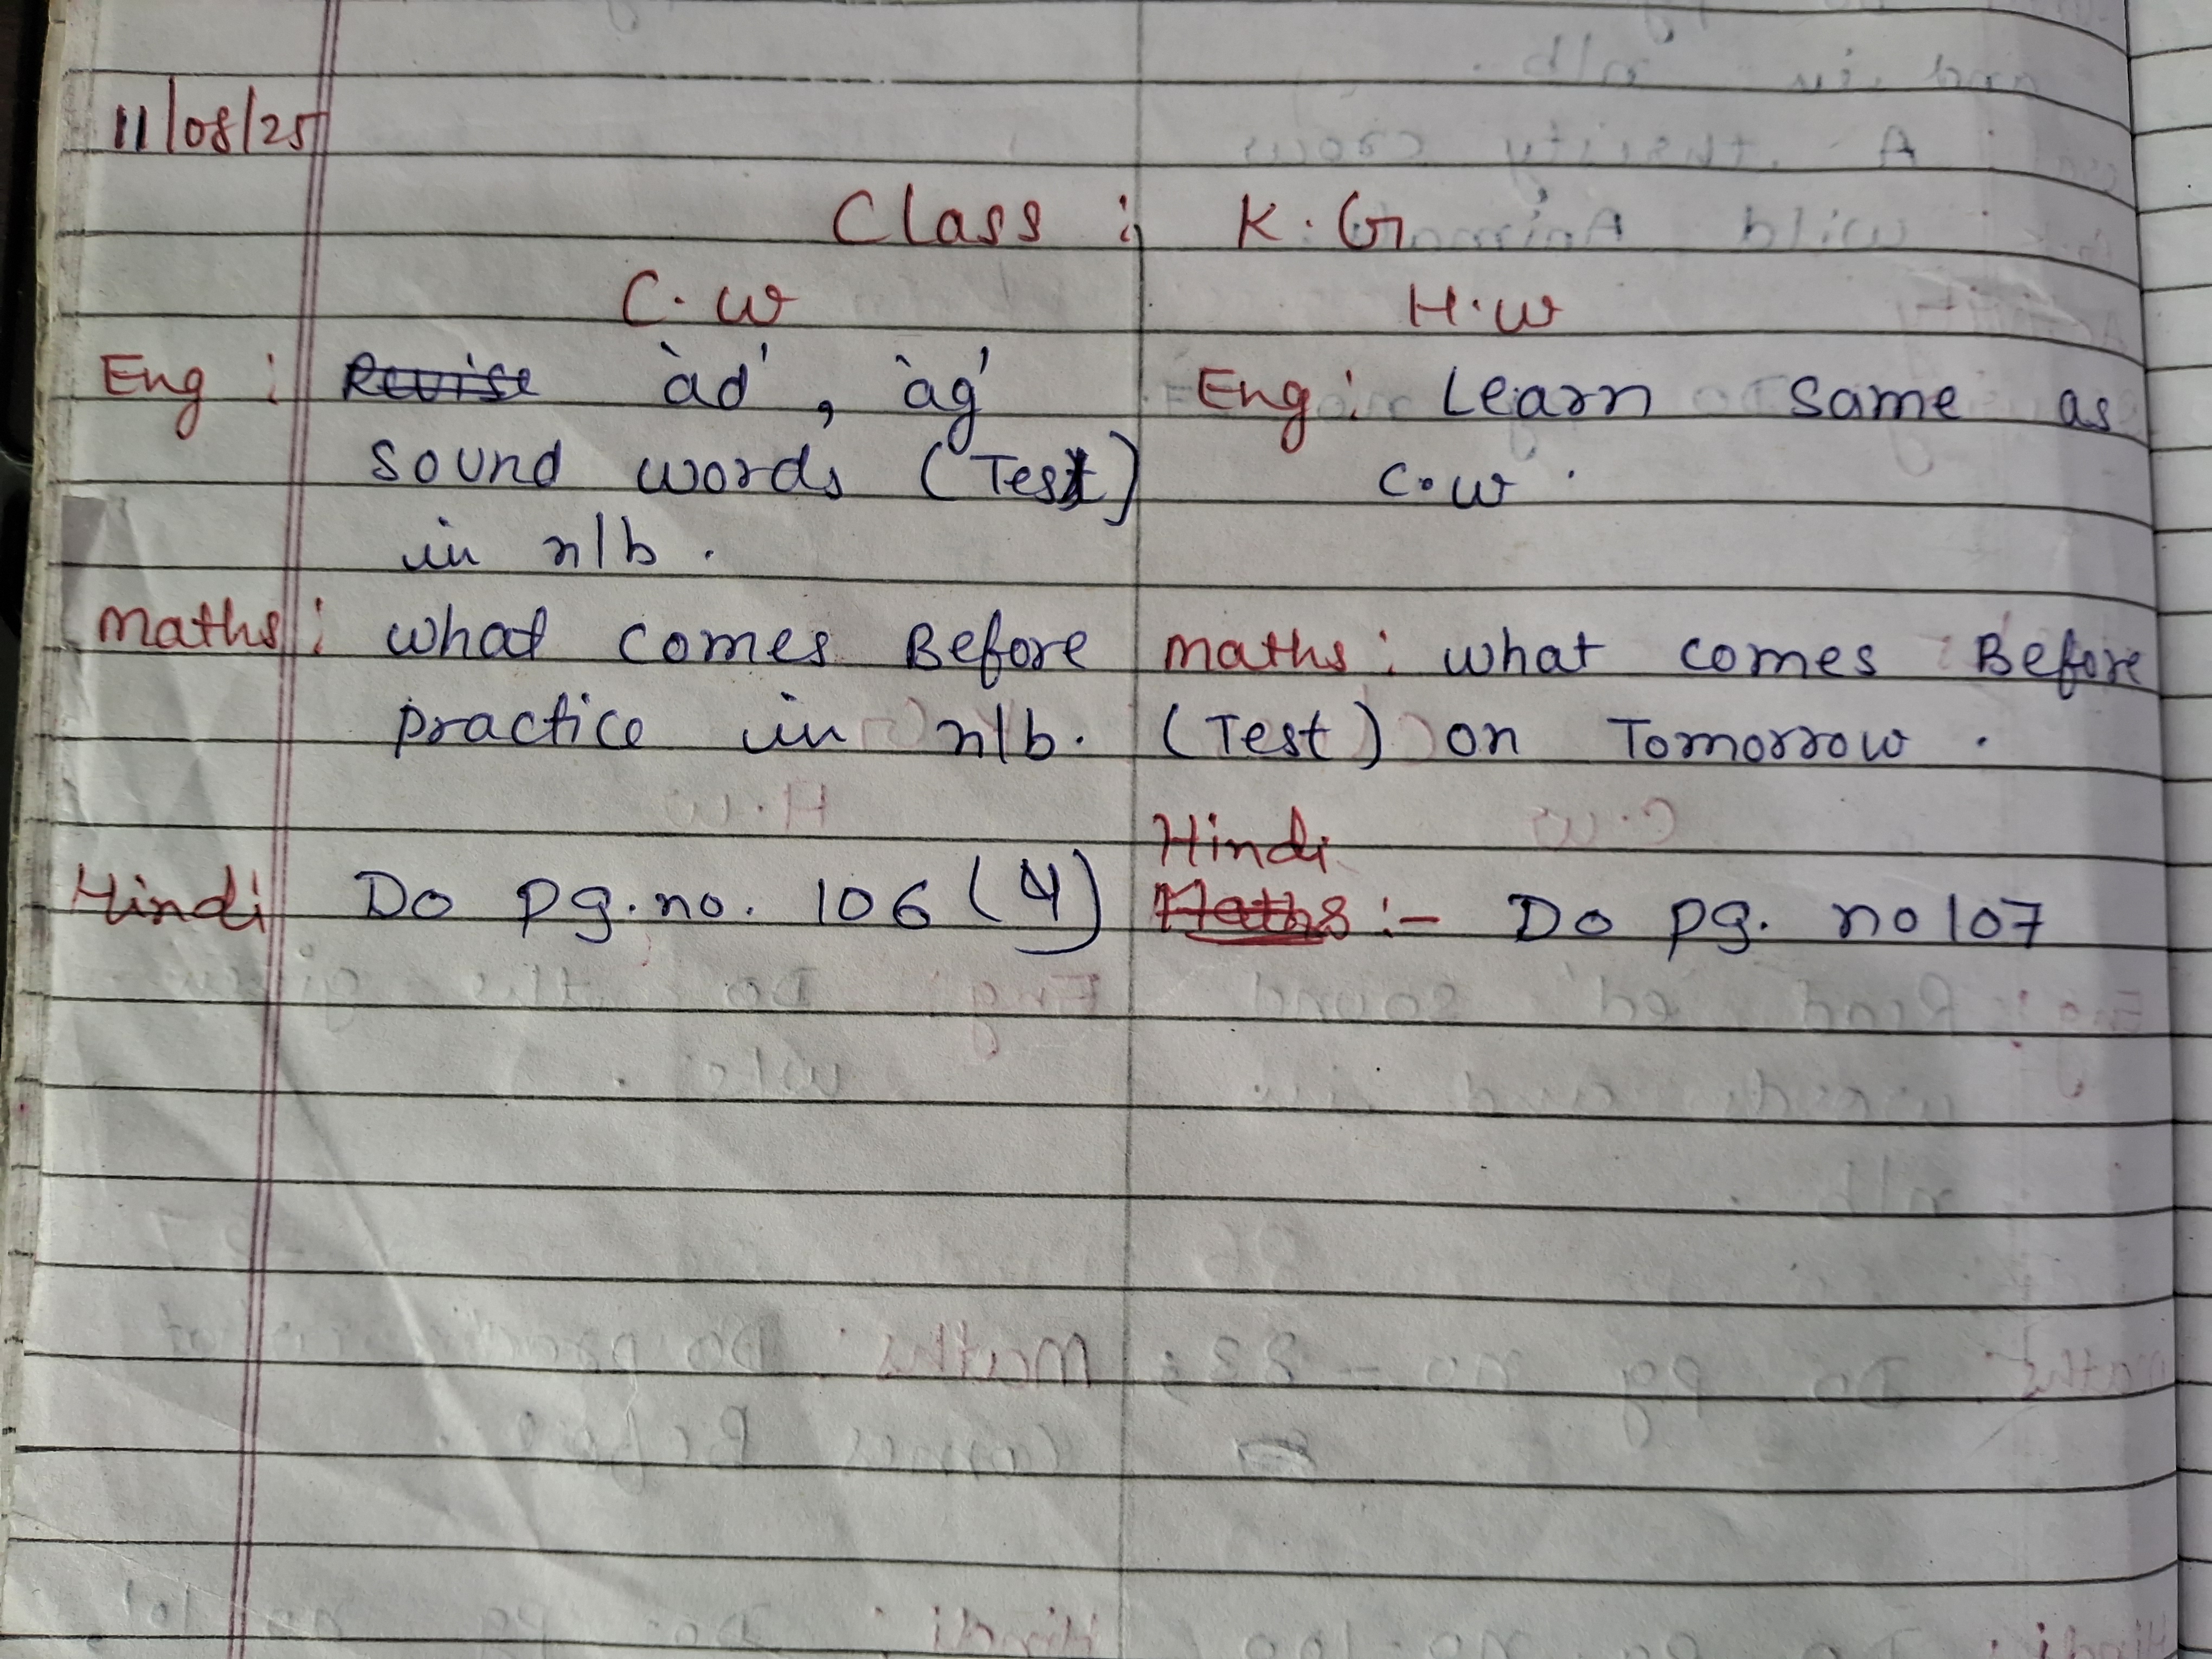 11/08/25
Class : K.G
C.W H.W
Eng : Revise 'ad', 'ag' Eng : Learn same as
sound words (Test) C.W.
in n/b.
Maths : What comes Before Maths : What comes Before
practice in n/b. (Test) on Tomorrow.
Hindi
Hindi Do pg.no. 106 (4) Maths :- Do pg. no 107